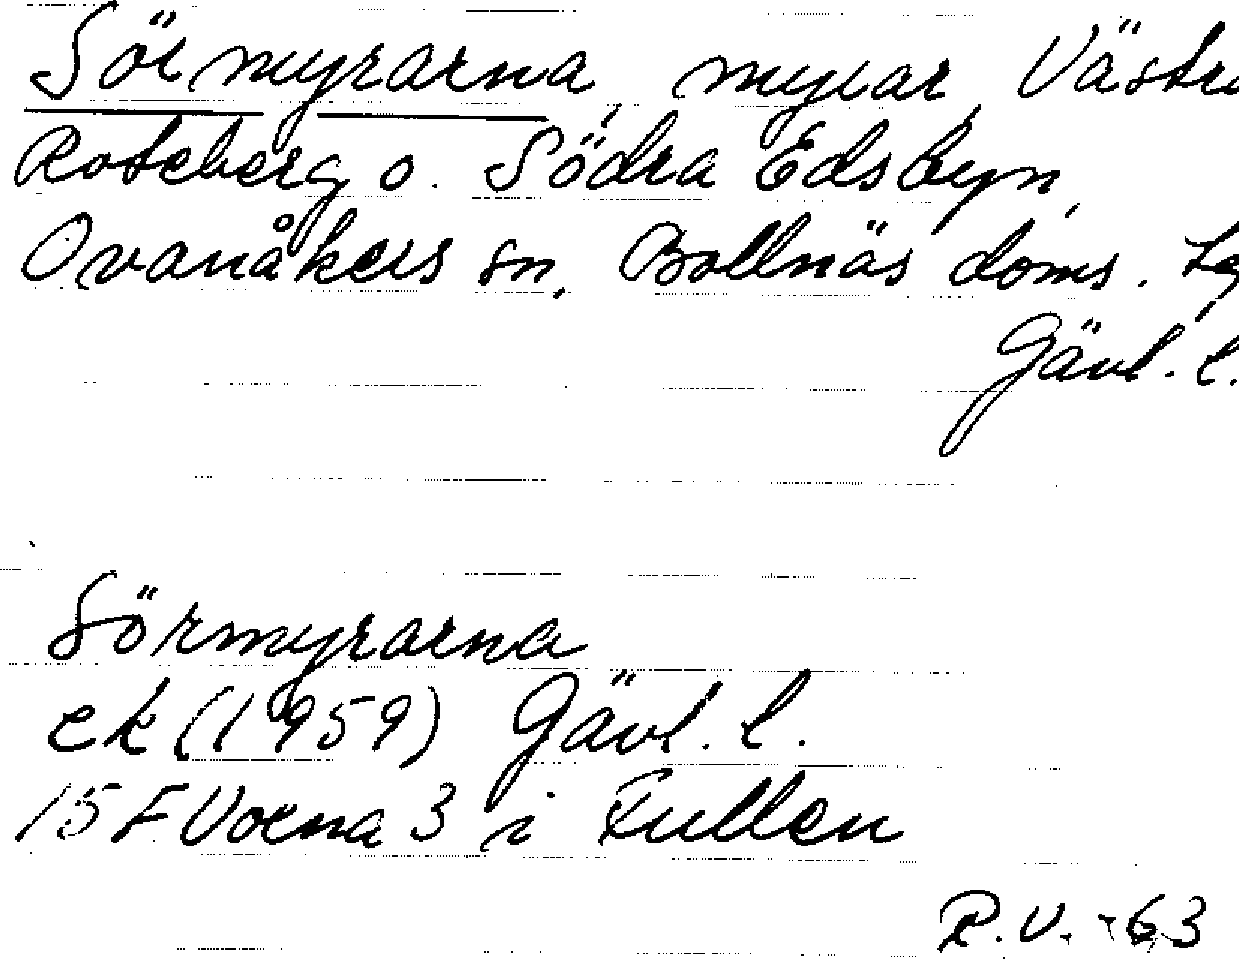 Sörmyrarna, myrar, Västra
Roteberg o. Södra Edsbyn,
Ovanåkers sn, Bollnäs doms.
Gävl. l.
Sörmyrarna
ek (1959) Gävl. l.
15 F Voxna 3 i Fullen
R.V. -63